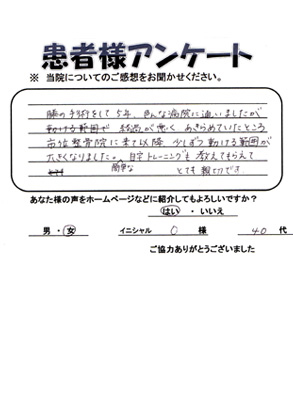 患者様アンケート
※ 当院についてのご感想をお聞かせください。
膝の手術をして5年、色んな病院に通いましたが
動ける範囲が 経過が悪く あきらめていたところ
整骨院に来て以降 少しずつ動ける範囲が
広くなりました。簡単な自宅トレーニングも教えてもらえて
とても とても親切です。
あなた様の声をホームページなどに紹介してもよろしいですか？
はい ・ いいえ
男 ・ 女 イニシャル O 様 40 代
ご協力ありがとうございました